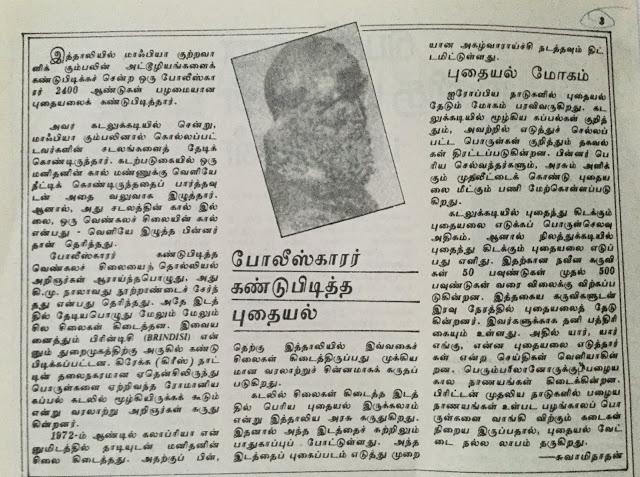 3
இத்தாலியில் மாஃபியா குற்றவா
ளிக் கும்பலின் அட்டூழியங்களைக்
கண்டுபிடிக்கச் சென்ற ஒரு போலீஸ்கா
ரர் 2400 ஆண்டுகள் பழமையான
புதையலைக் கண்டுபிடித்தார்.
அவர் கடலுக்கடியில் சென்று,
மாஃபியா கும்பலினால் கொல்லப்பட்
டவர்களின் சடலங்களைத் தேடிக்
கொண்டிருந்தார். கடற்படுகையில் ஒரு
மனிதனின் கால் மண்ணுக்கு வெளியே
நீட்டிக் கொண்டிருந்ததைப் பார்த்தவு
டன் அதை வலுவாக இழுத்தார்.
ஆனால், அது சடலத்தின் கால் இல்
லை, ஒரு வெண்கலச் சிலையின் கால்
என்பது - வெளியே இழுத்த பின்னர்
தான் தெரிந்தது.
போலீஸ்காரர் கண்டுபிடித்த
வெண்கலச் சிலையைத் தொல்லியல்
அறிஞர்கள் ஆராய்ந்தபொழுது, அது
கி.மு. நாலாவது நூற்றாண்டைச் சேர்ந்
தது என்பது தெரிந்தது. அதே இடத்
தில் தேடியபொழுது மேலும் மேலும்
சில சிலைகள் கிடைத்தன. இவைய
னைத்தும் பிரின்டிசி (BRINDISI) என்
னும் துறைமுகத்திற்கு அருகில் கண்டு
பிடிக்கப்பட்டன. கிரேக்க (கிரீஸ்) நாட்
டின் தலைநகரமான ஏதென்சிலிருந்து
பொருள்களை ஏற்றிவந்த ரோமானிய
கப்பல் கடலில் மூழ்கியிருக்கக் கூடும்
என்று வரலாற்று அறிஞர்கள் கருது
கின்றனர்.
1972-ம் ஆண்டில் கலாப்ரியா என்
னுமிடத்தில் தாடியுடன் மனிதனின்
சிலை கிடைத்தது. அதற்குப் பின்,
போலீஸ்காரர்
கண்டுபிடித்த
புதையல்
தெற்கு இத்தாலியில் இவ்வகைச்
சிலைகள் கிடைத்திருப்பது முக்கிய
மான வரலாற்றுச் சின்னமாகக் கருதப்
படுகிறது.
கடலில் சிலைகள் கிடைத்த இடத்
தில் பெரிய புதையல் இருக்கலாம்
என்று இத்தாலிய அரசு கருதுகிறது.
இதனால் அந்த இடத்தைச் சுற்றிலும்
பாதுகாப்புப் போட்டுள்ளது. அந்த
இடத்தைப் புகைப்படம் எடுத்து முறை
யான அகழ்வாராய்ச்சி நடத்தவும் திட்
டமிட்டுள்ளது.
புதையல் மோகம்
ஐரோப்பிய நாடுகளில் புதையல்
தேடும் மோகம் பரவிவருகிறது. கட
லுக்கடியில் மூழ்கிய கப்பல்கள் குறித்
தும், அவற்றில் எடுத்துச் செல்லப்
பட்ட பொருள்கள் குறித்தும் தகவல்
கள் திரட்டப்படுகின்றன. பின்னர் பெ
ரிய செல்வந்தர்களும், அரசும் அளிக்
கும் முதலீட்டைக் கொண்டு புதைய
லை மீட்கும் பணி மேற்கொள்ளப்படு
கிறது.
கடலுக்கடியில் புதைந்து கிடக்கும்
புதையலை எடுக்கப் பொருள்செலவு
அதிகம். ஆனால் நிலத்துக்கடியில்
புதைந்து கிடக்கும் புதையலை எடுப்
பது எளிது. இதற்கான நவீன கருவி
கள் 50 பவுண்டுகள் முதல் 500
பவுண்டுகள் வரை விலைக்கு விற்கப்ப
டுகின்றன. இத்தகைய கருவிகளுடன்
இரவு நேரத்தில் புதையலைத் தேடு
கின்றனர். இவர்களுக்காக தனி பத்திரி
கையும் உள்ளது. அதில் யார், யார்
எங்கு, என்ன புதையலை எடுத்தார்
கள் என்ற செய்திகள் வெளியாகின்
றன. பெரும்பாலானோருக்கு பழைய
கால நாணயங்கள் கிடைக்கின்றன.
பிரிட்டன் முதலிய நாடுகளில் பழைய
நாணயங்கள் உள்பட பழங்காலப் பொ
ருள்களை வாங்கி விற்கும் கடைகள்
நிறைய இருப்பதால், புதையல் வேட்
டை நல்ல லாபம் தருகிறது.
—சுவாமிநாதன்